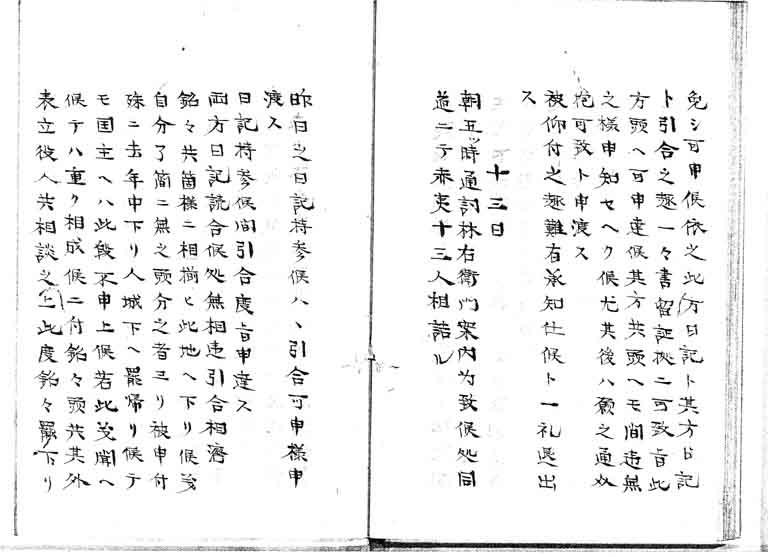 免シ可申候依之此方日記ト其方日記
ト引合之趣一々書留証拠ニ可致旨此
方頭ヘ可申達候其方共頭ヘモ間違無
之様申知セヘク候尤其後ハ願之通双
抱可致ト申渡ス
被仰付之趣難有承知仕候ト一礼退出
ス
十三日
朝五ツ時通詞林右衛門案内为致候処同
道ニテ赤夷十三人相詰ル
昨日之日記持参候ハヽ引合可申様申
渡ス
日記持参候間引合度旨申達ス
両方日記読合候処無相違引合相済
銘々共箇様ニ相揃ヒ此地ヘ下リ候義
自分了簡ニ無之頭分之者ヨリ被申付
殊ニ去年中下リ人城下ヘ罷帰リ候テ
モ国主ヘハ此段不申上候若此義聞ヘ
候テハ重ク相成候ニ付銘々頭共其外
表立役人共相談之上此度銘々罷下リ